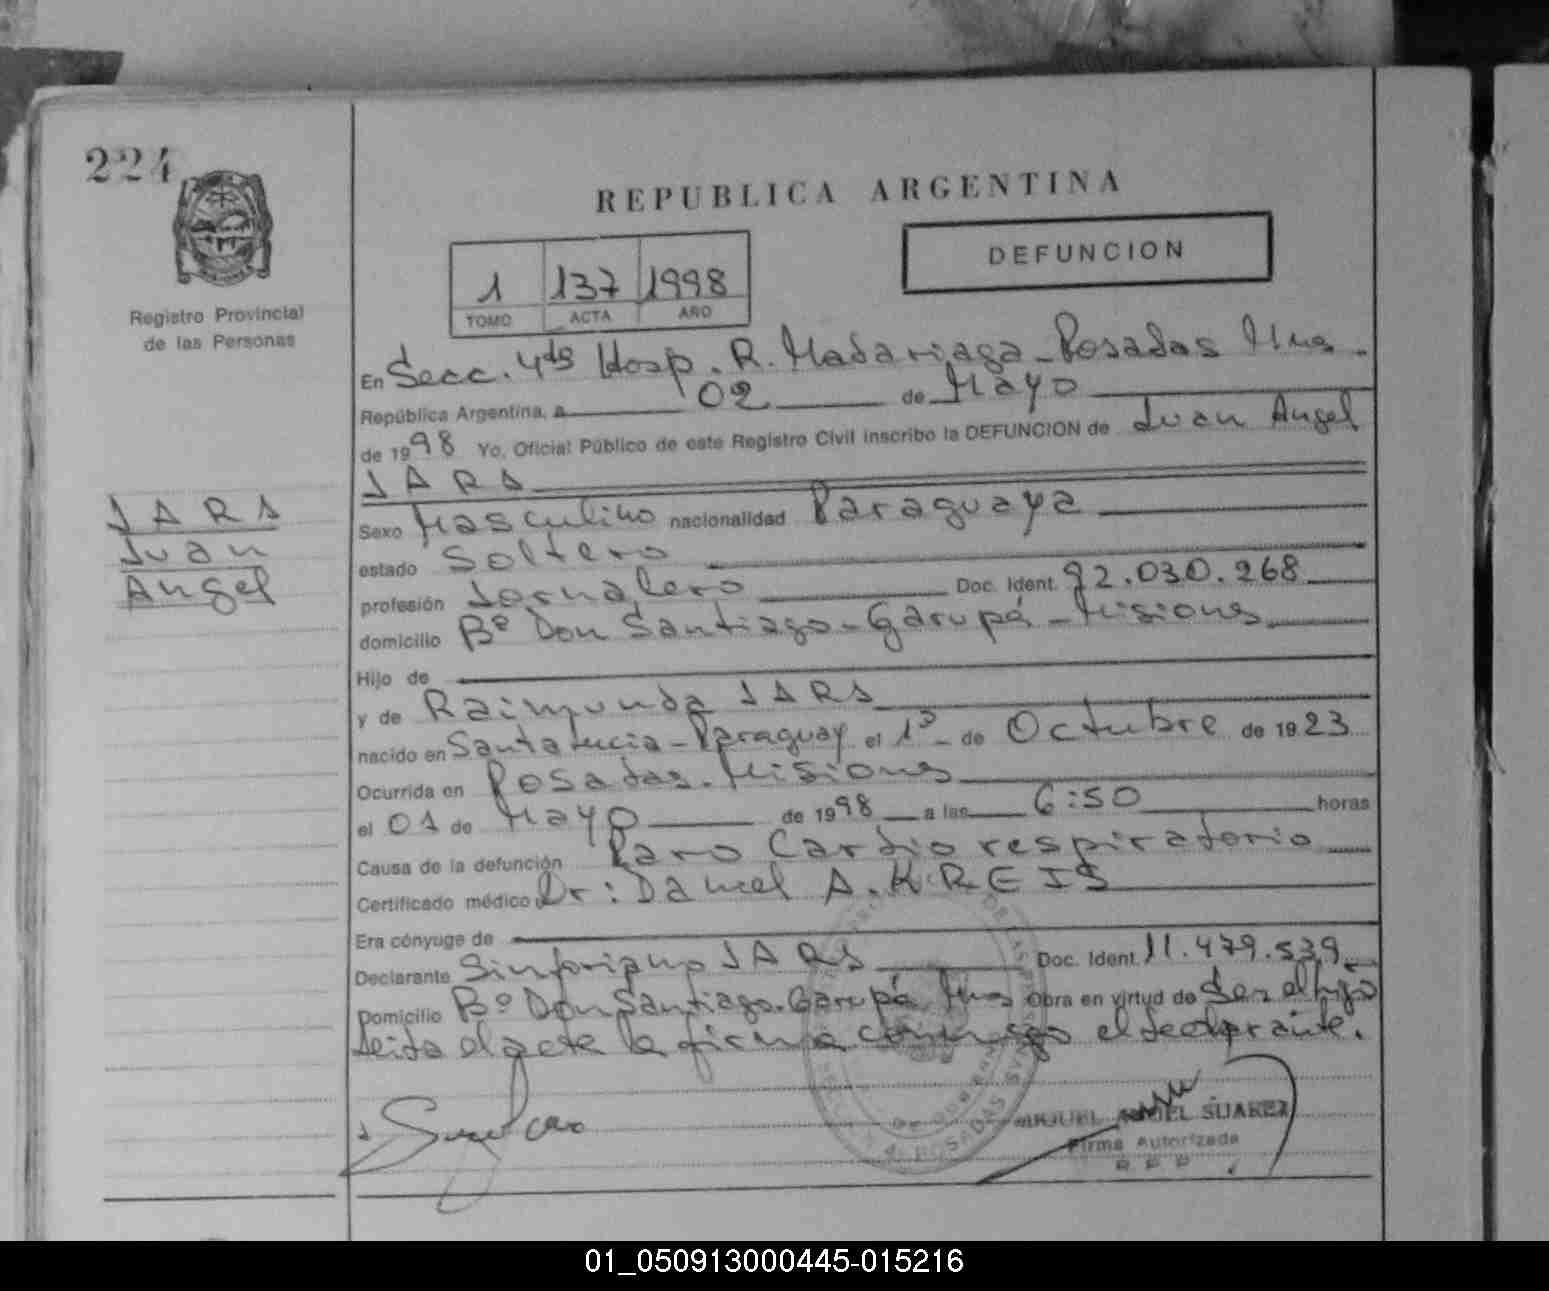 224
Registro Provincial
de las Personas
REPUBLICA ARGENTINA
DEFUNCION
1 137 1998
TOMO ACTA AÑO
En Secc. 4ta Hosp. R. Madariaga - Posadas Mnes.
República Argentina, a 02 de Mayo
de 1998 Yo, Oficial Público de este Registro Civil inscribo la DEFUNCION de Juan Angel
JARA
JARA
Juan
Angel
Sexo Masculino nacionalidad Paraguaya
estado Soltero
profesión Jornalero Doc. Ident. 92.030.268
domicilio Bº Don Santiago - Garupá - Misiones
Hijo de
y de Raimunda JARA
nacido en Santa Lucia - Paraguay el 1º de Octubre de 1923
Ocurrida en Posadas. Misiones
el 01 de Mayo de 1998 a las 6:50 horas
Causa de la defunción Paro Cardio respiratorio
Certificado médico Dr: Daniel A. KREIS
Era cónyuge de
Declarante Sinforiano JARA Doc. Ident. 11.479.539
Domicilio Bº Don Santiago. Garupá Mnes Obra en virtud de Ser el hijo
Leida el acta la firma conmigo el declarante.
MIGUEL ANGEL SUAREZ
Firma Autorizada
R. P. P.
POSADAS
01_050913000445-015216